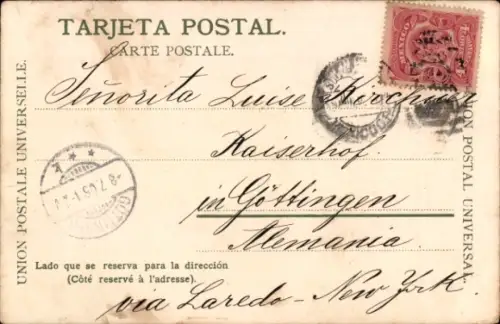 TARJETA POSTAL.
CARTE POSTALE.
UNION POSTALE UNIVERSELLE.
UNION POSTAL UNIVERSAL.
MEXICO
Señorita Luise Kirchner
Kaiserhof.
in Göttingen
Alemania.
Lado que se reserva para la dirección
(Côté reservé à l'adresse).
via Laredo - New York.